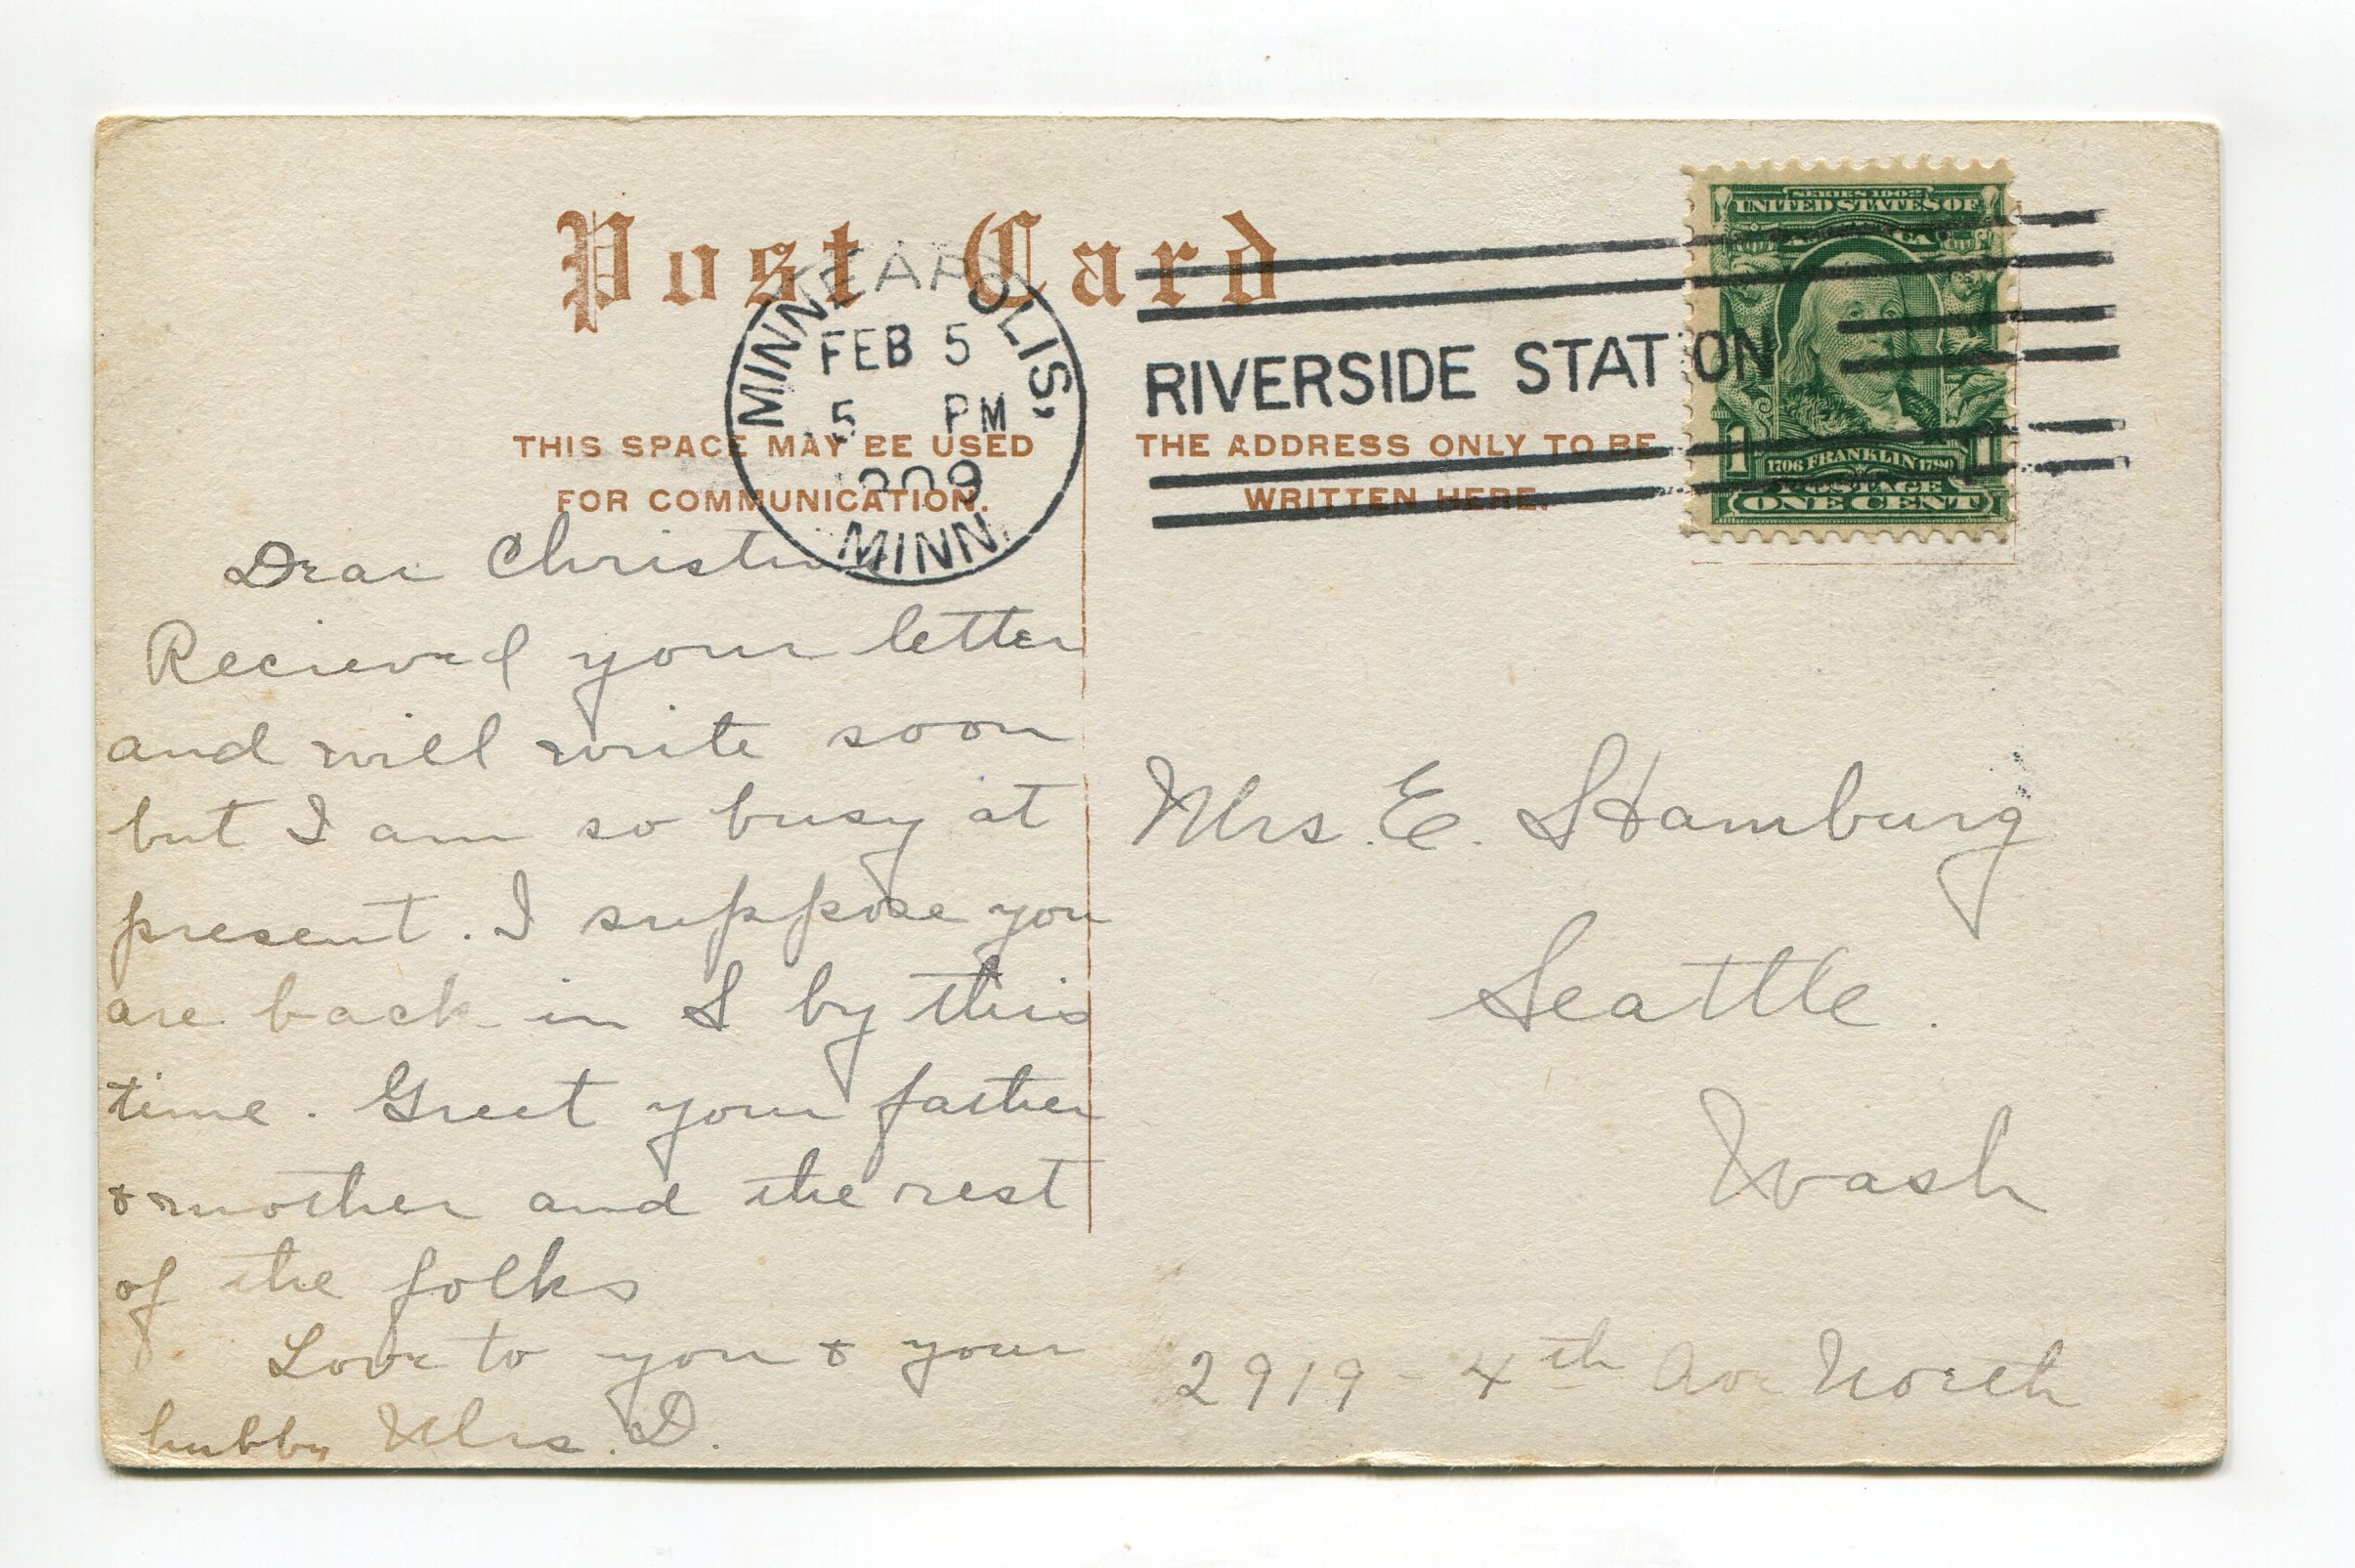 Post Card
MINNEAPOLIS,
FEB 5
5 PM
1909
MINN.
RIVERSIDE STATION
SERIES 1902
UNITED STATES OF
AMERICA
1 1
1706 FRANKLIN 1790
POSTAGE
ONE CENT
THIS SPACE MAY BE USED
FOR COMMUNICATION.
THE ADDRESS ONLY TO BE
WRITTEN HERE.
Dear Christine
Recieved your letter
and will write soon
but I am so busy at
present. I suppose you
are back in S by this
time. Greet your father
& mother and the rest
of the folks
Love to you & your
hubby Mrs. D.
Mrs. E. Hamburg
Seattle.
Wash
2919 - 4th Ave North